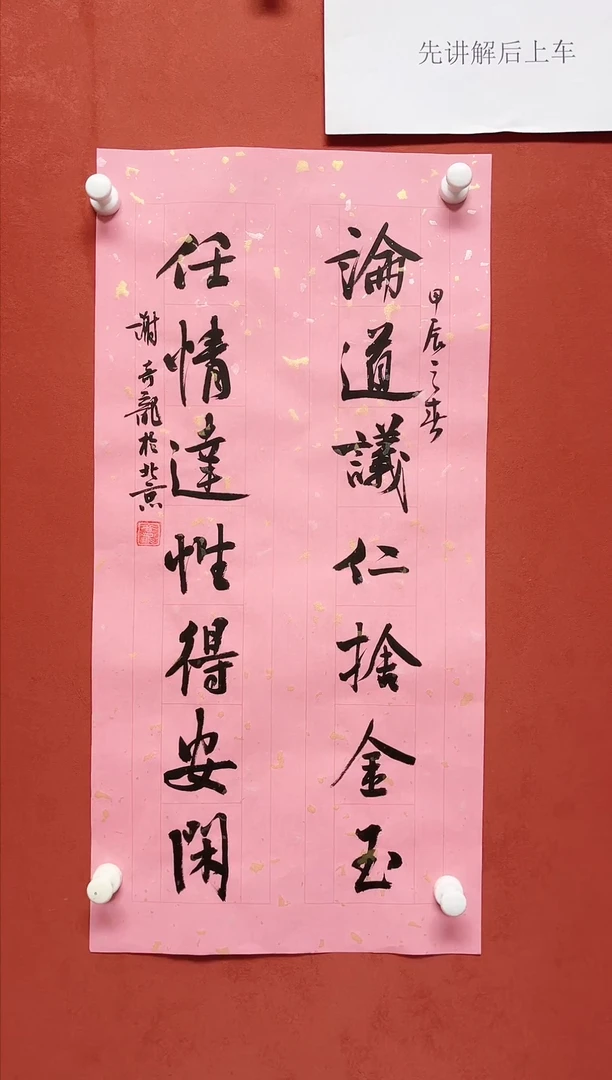 先讲解后上车
甲辰之春
論道議仁捨金玉
任情達性得安閑
謝奇龍於北京